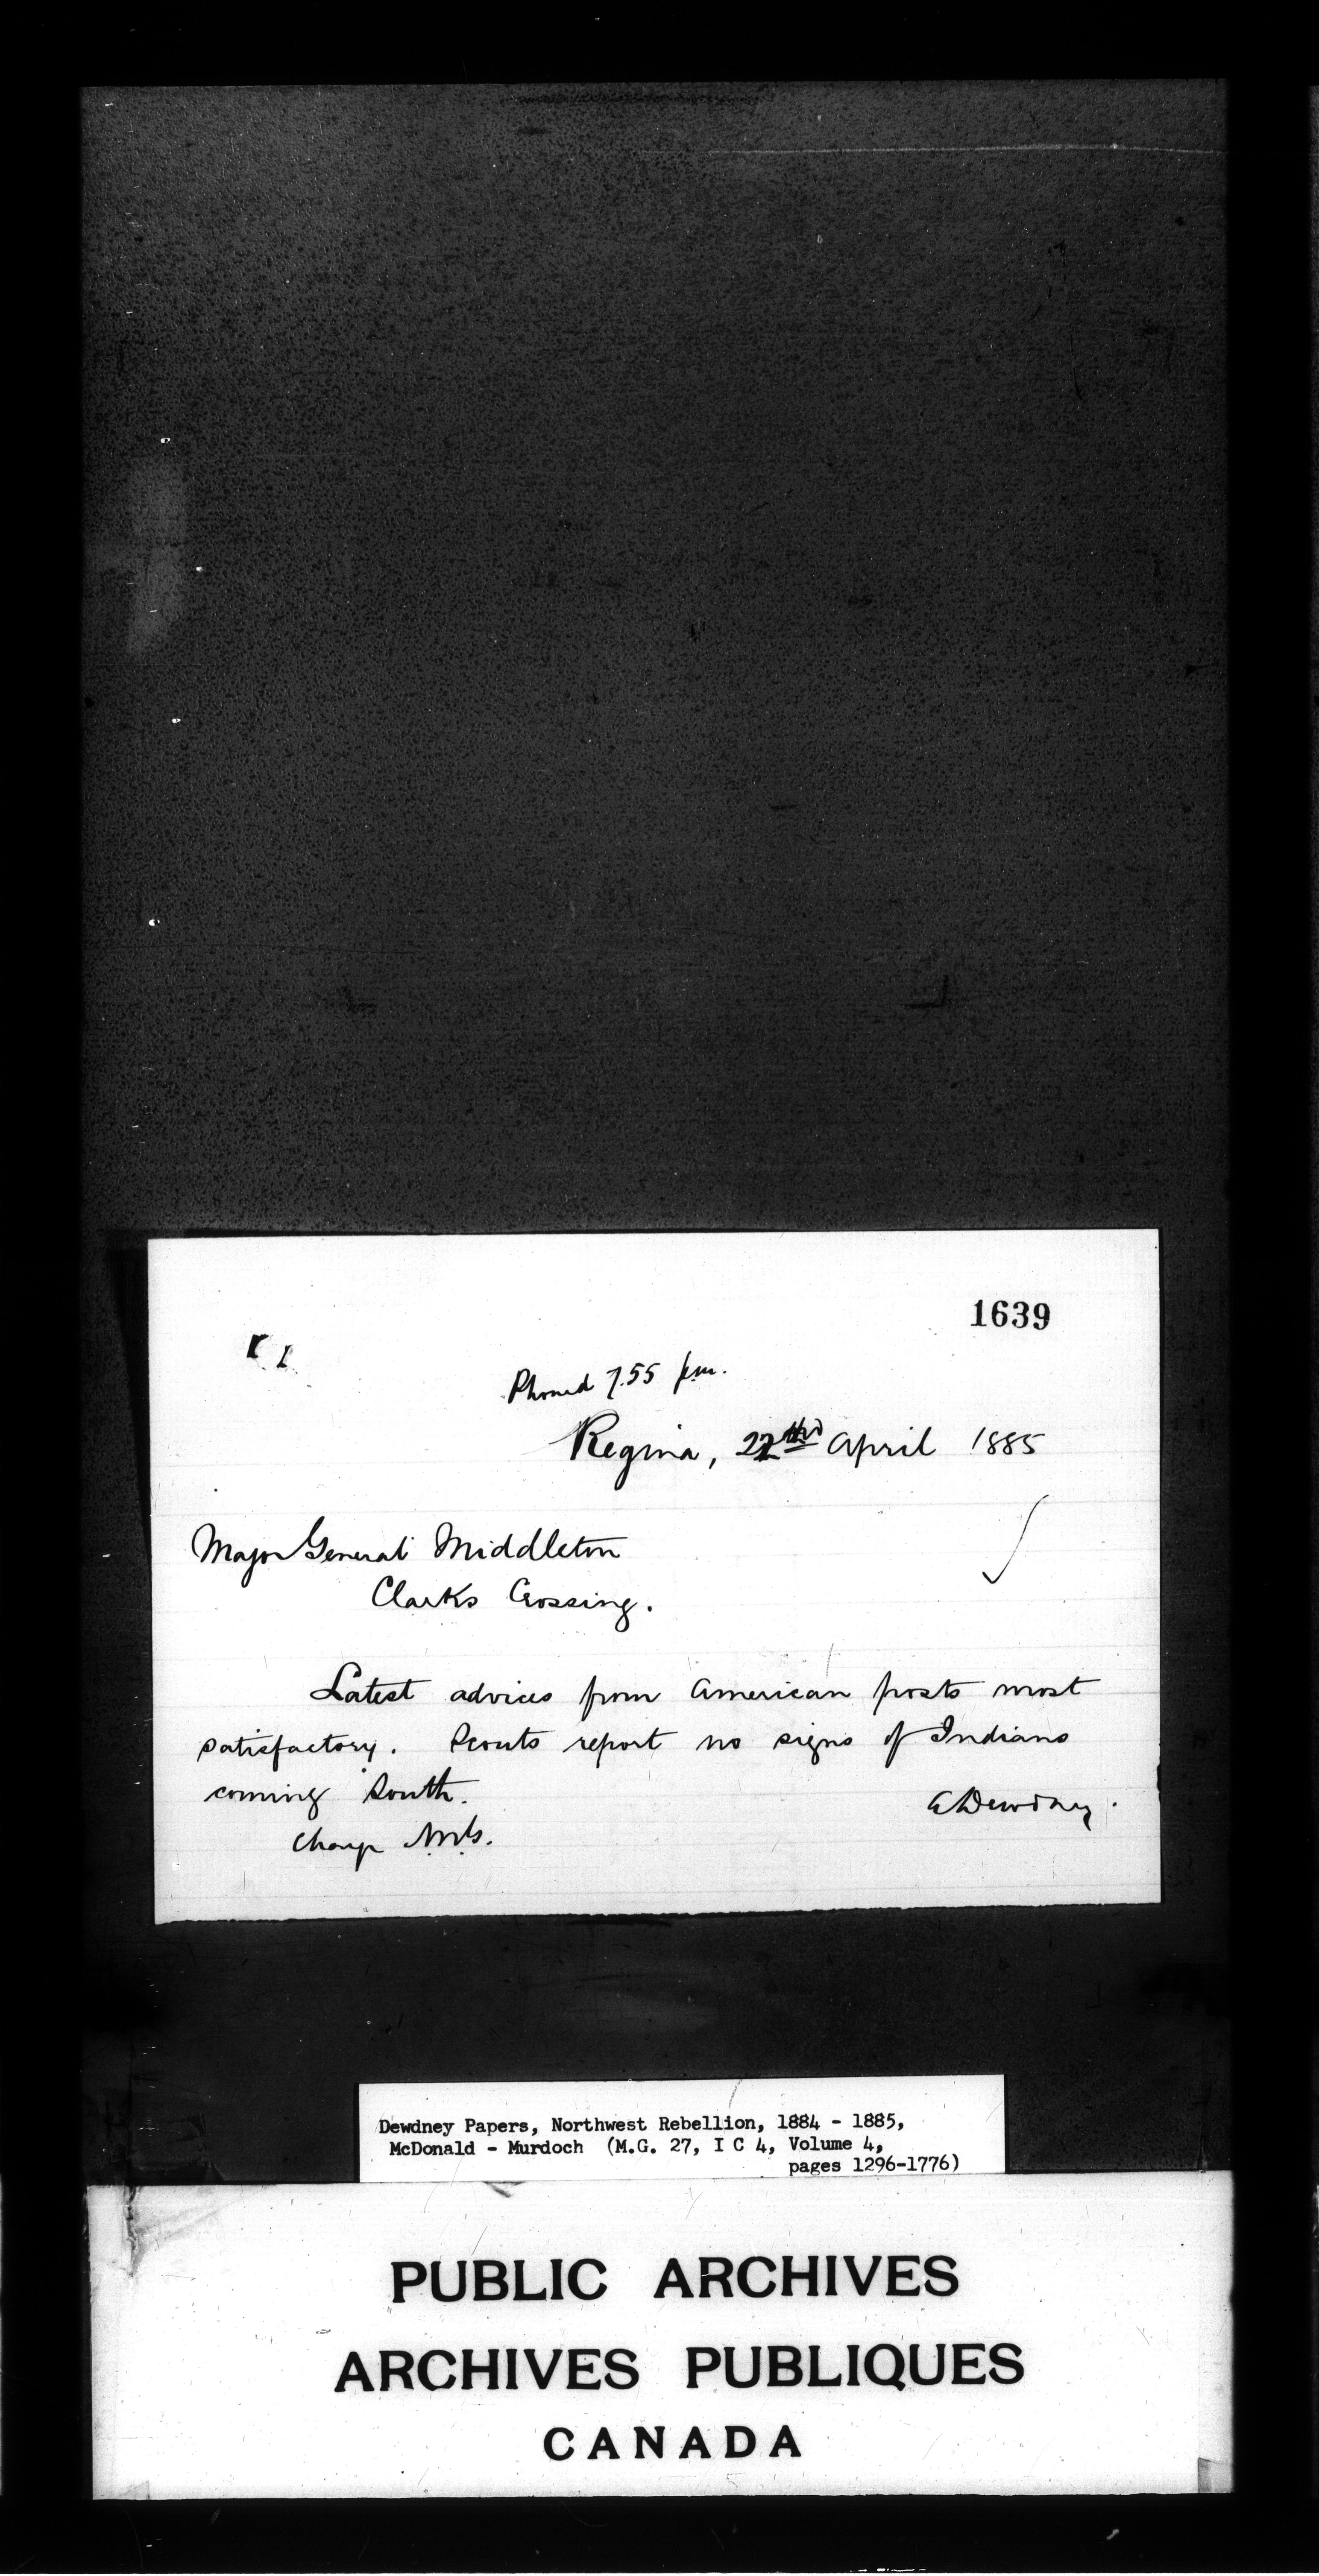 1639
Phoned 7.55 p.m.
Regina, 22nd April 1885
Major General Middleton
Clarks Crossing.
Latest advices from American posts most
satisfactory. Scouts report no signs of Indians
coming South.
E Dewdney.
Charge
Dewdney Papers, Northwest Rebellion, 1884 - 1885,
McDonald - Murdoch (M.G. 27, I C 4, Volume 4,
pages 1296-1776)
PUBLIC ARCHIVES
ARCHIVES PUBLIQUES
CANADA